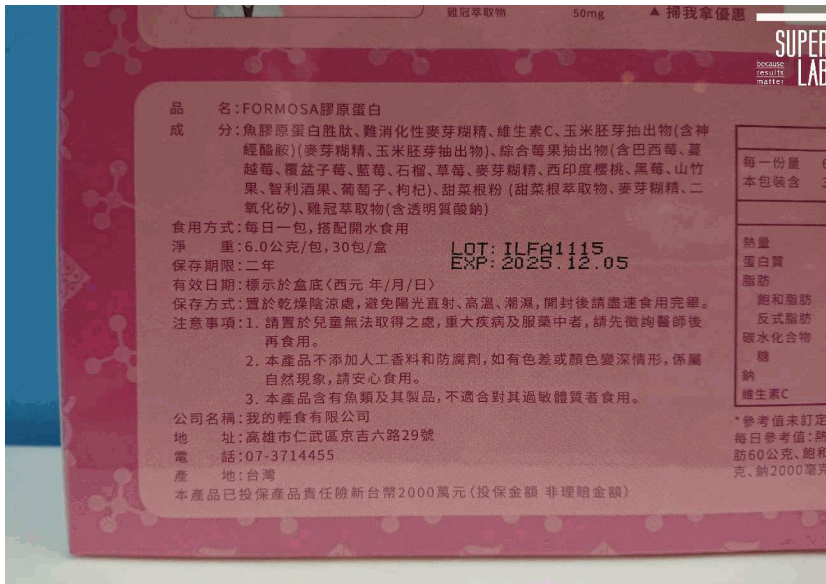 雞冠萃取物 50mg ▲掃我拿優惠
SUPER
LAB
because
results
matter
品 名:FORMOSA膠原蛋白
成 分:魚膠原蛋白胜肽、難消化性麥芽糊精、維生素C、玉米胚芽抽出物(含神
經醯胺)(麥芽糊精、玉米胚芽抽出物)、綜合莓果抽出物(含巴西莓、蔓
越莓、覆盆子莓、藍莓、石榴、草莓、麥芽糊精、西印度櫻桃、黑莓、山竹
果、智利酒果、葡萄子、枸杞)、甜菜根粉 (甜菜根萃取物、麥芽糊精、二
氧化矽)、雞冠萃取物(含透明質酸鈉)
食用方式:每日一包,搭配開水食用
淨 重:6.0公克/包,30包/盒
LOT: ILFA1115
EXP: 2025.12.05
保存期限:二年
有效日期:標示於盒底〈西元 年/月/日〉
保存方式:置於乾燥陰涼處,避免陽光直射、高溫、潮濕,開封後請盡速食用完畢。
注意事項:1. 請置於兒童無法取得之處,重大疾病及服藥中者,請先徵詢醫師後
再食用。
2. 本產品不添加人工香料和防腐劑,如有色差或顏色變深情形,係屬
自然現象,請安心食用。
3. 本產品含有魚類及其製品,不適合對其過敏體質者食用。
公司名稱:我的輕食有限公司
地 址:高雄市仁武區京吉六路29號
電 話:07-3714455
產 地:台灣
本產品已投保產品責任險新台幣2000萬元(投保金額 非理賠金額)
每一份量 6
本包裝含 3
熱量
蛋白質
脂肪
飽和脂肪
反式脂肪
碳水化合物
糖
鈉
維生素C
*參考值未訂定
每日參考值:熱
肪60公克、飽和
克、鈉2000毫克